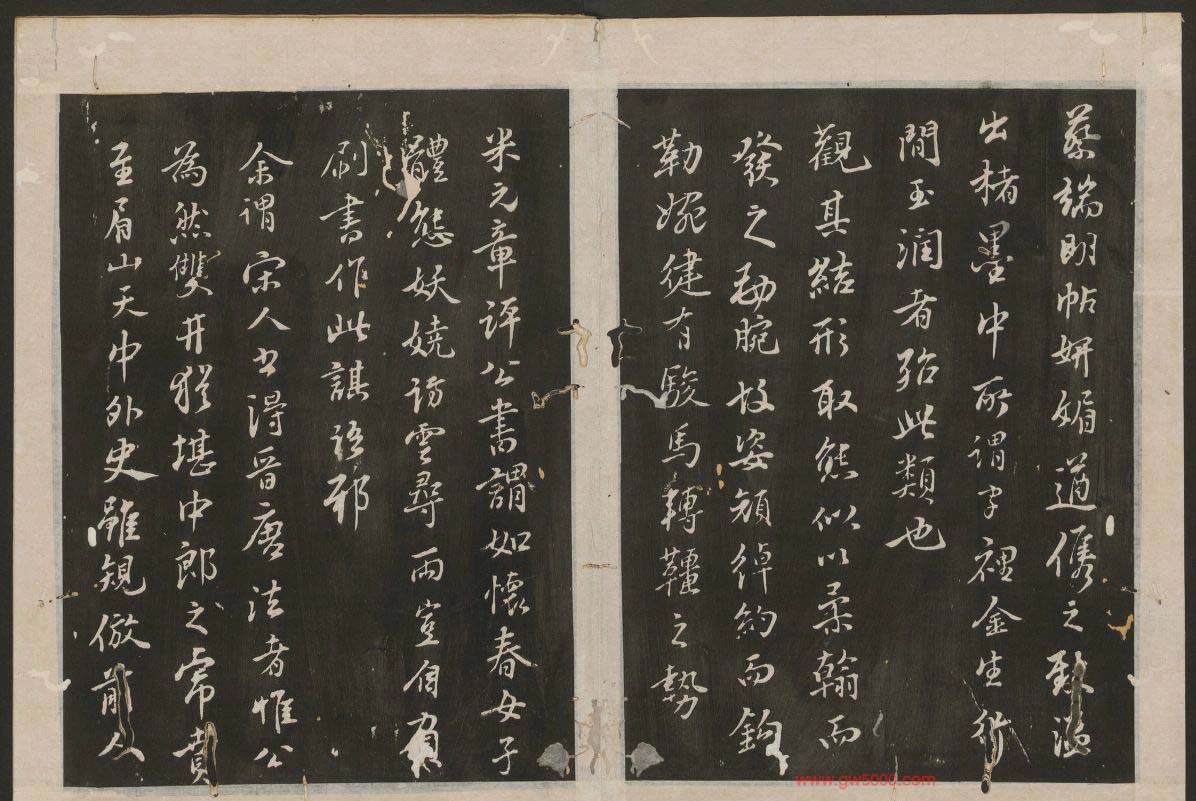 蔡端明帖妍媚遒儁之致溢
出楮墨中所謂字裡金生行
間玉潤者殆此類也
觀其結形取態似以柔翰而
發之勁腕故姿頗綽約而鉤
勒婉健有駿馬轉韁之勢
米元章評公書謂如懷春女子
體態妖嬈訪雲尋雨豈自有
刷書作此謀語邪
余謂宋人書得晉唐法者惟公
為然雙井猶堪中郎之常賁
至眉山天中外史雖規倣前人
www.gw5000.com